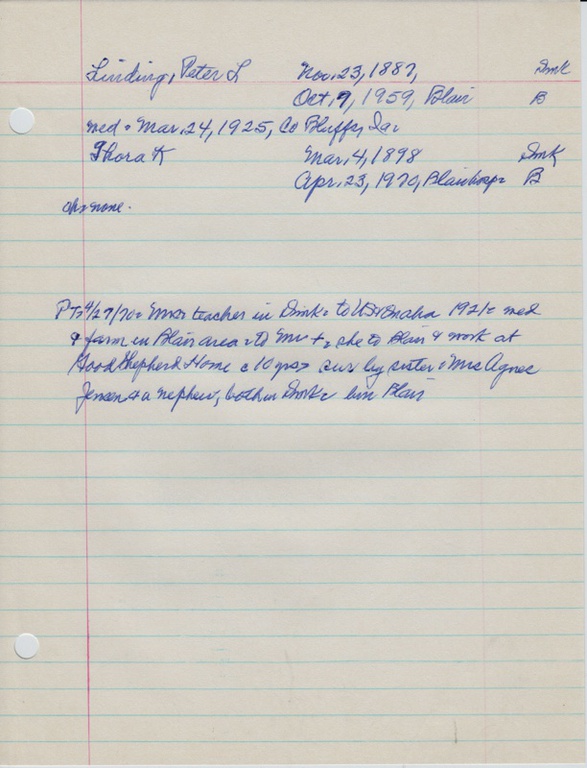 Linding, Peter L Nov, 23, 1887, Dmk
Oct, 9, 1959, Blair B
md = Mar, 24, 1925, Co Bluffs, Ia=
Thora K Mar, 4, 1898 Dmk
Apr, 23, 1970, Blair hosp= B
ch= none.
PT= 4/27/70= Mrs= teacher in Dmk= to US & Omaha 1921= md
& farm in Blair area = to Mr +, she to Blair & work at
Good Shepherd Home c 10 yrs= sur by sister = Mrs Agnes
Jensen & a nephew, both in Dmk= bur Blair